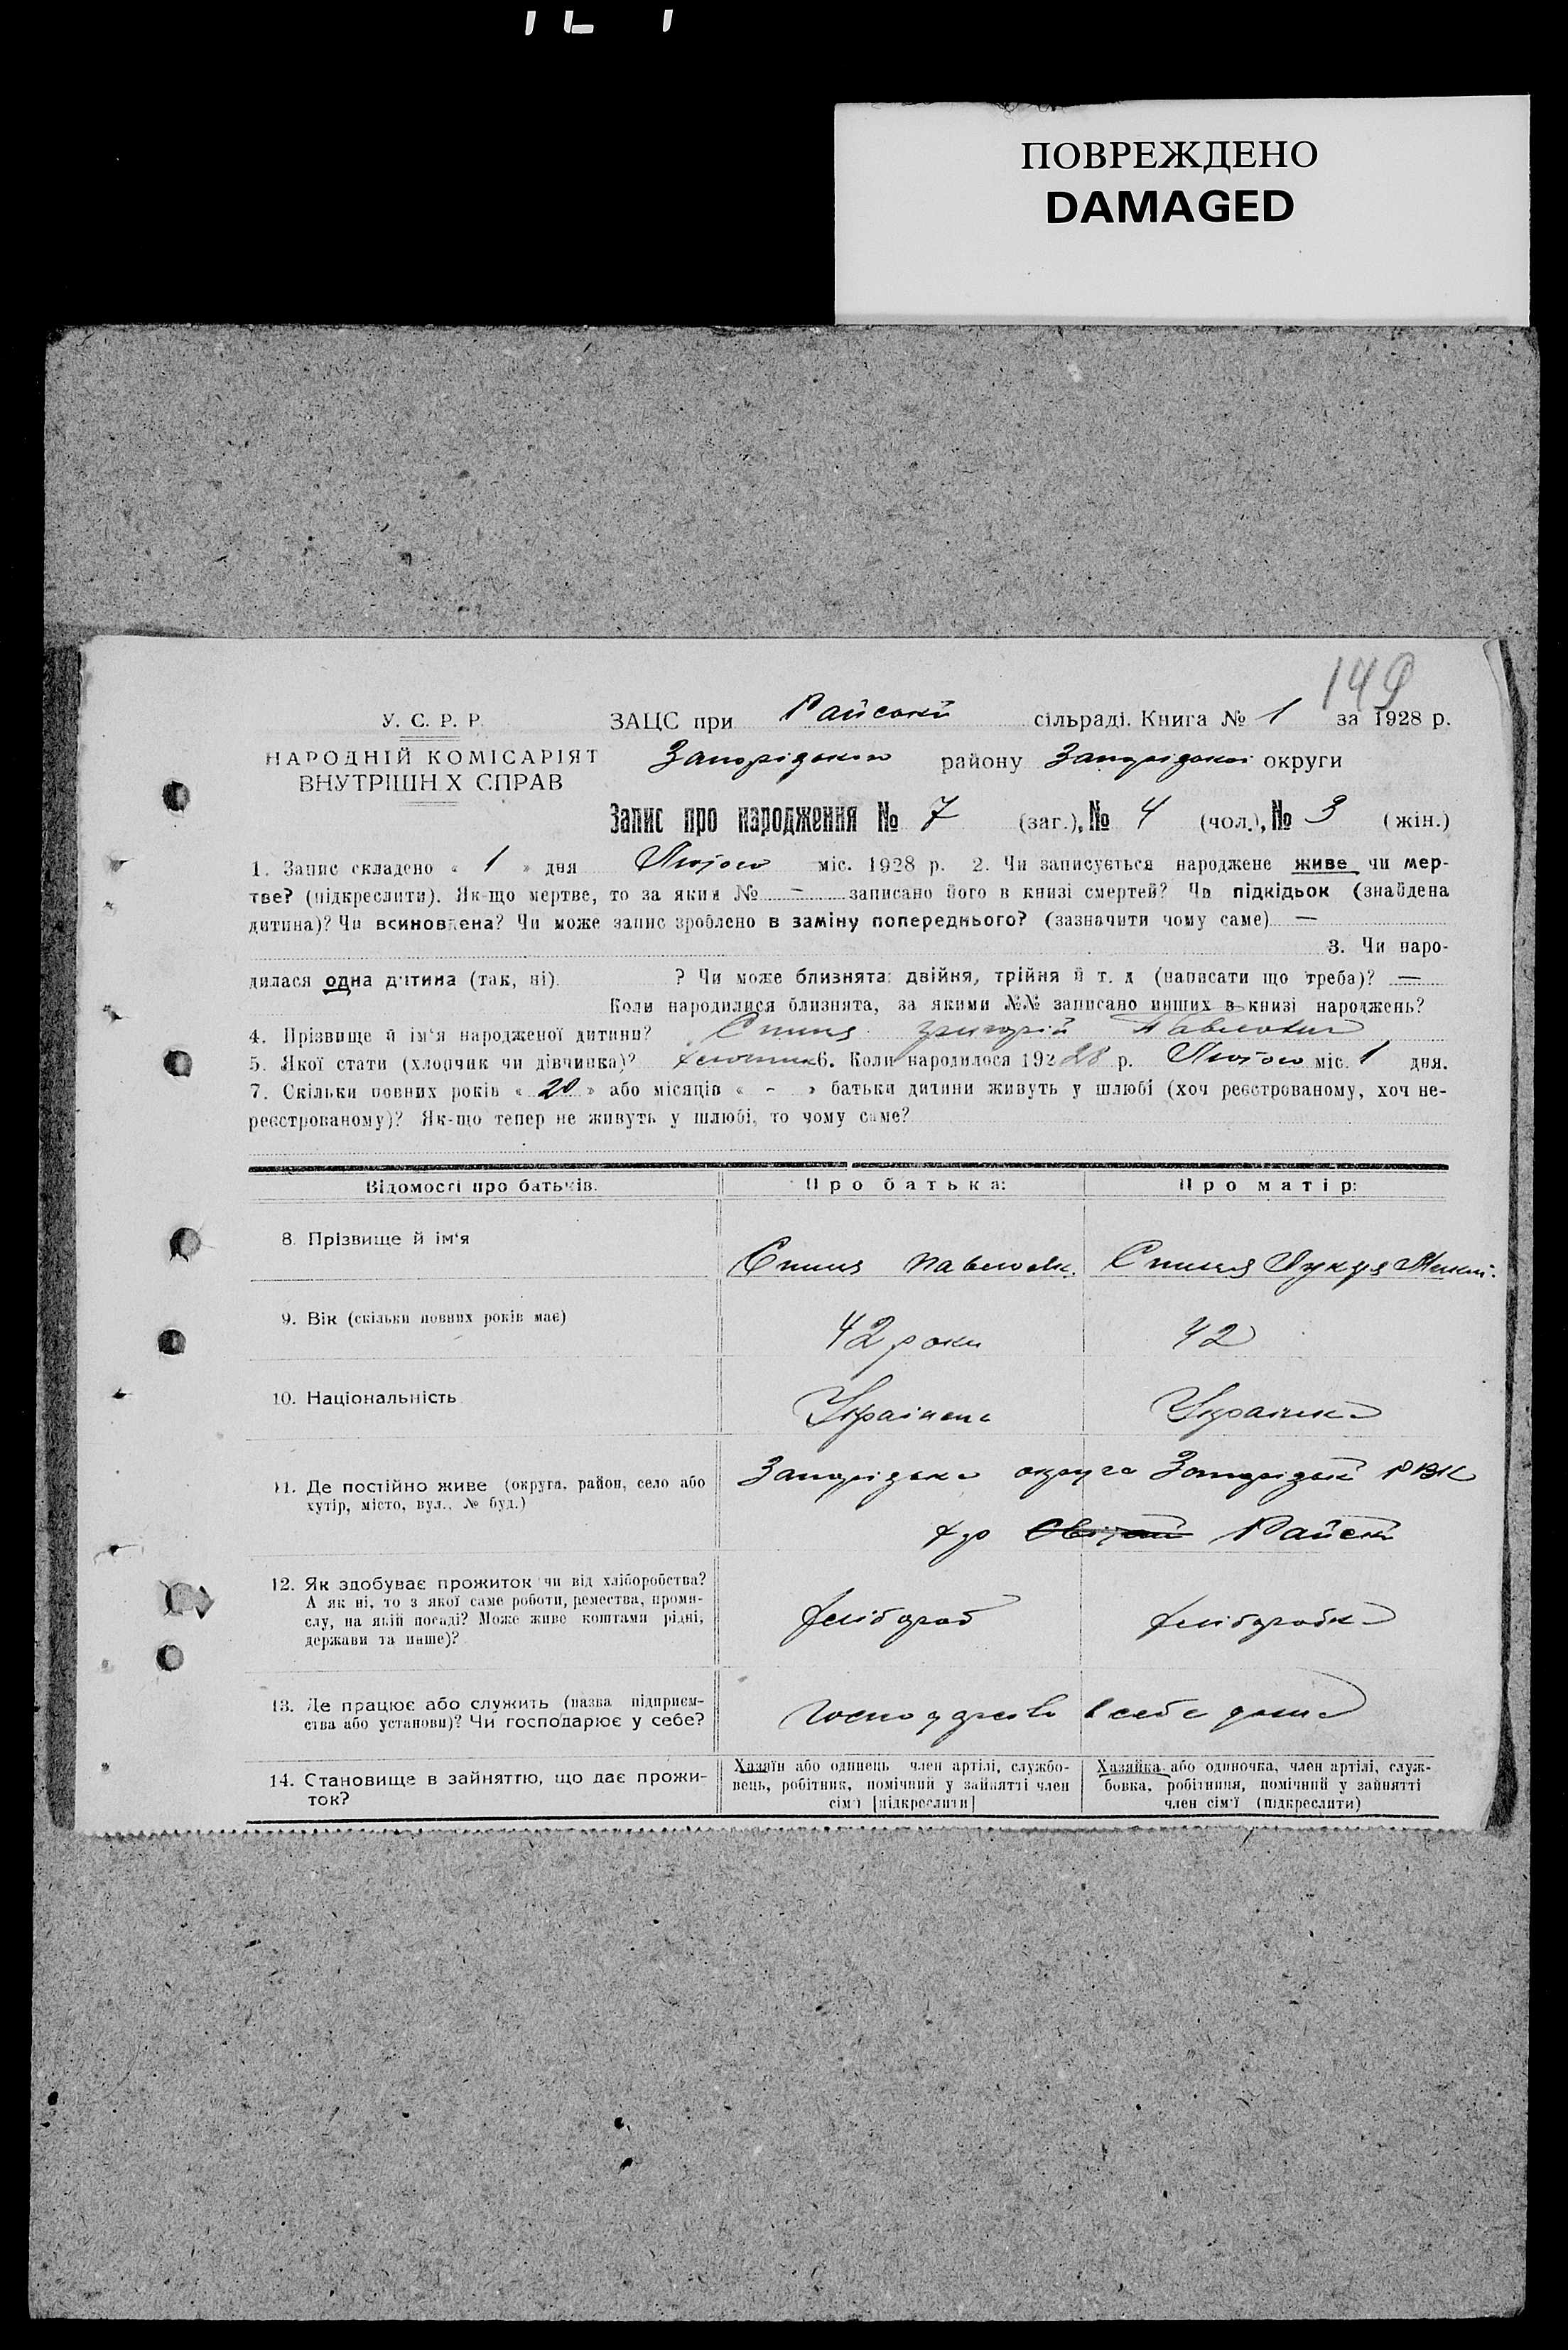 ПОВРЕЖДЕНО
DAMAGED
149
У. С. Р. Р.
НАРОДНІЙ КОМІСАРІЯТ
ВНУТРІШН Х СПРАВ
ЗАЦС при Райській сільраді. Книга № 1 за 1928 р.
Запорізького району Запорізької округи
Запис про народження № 7 (заг.), № 4 (чол.), № 3 (жін.)
1. Запис складено « 1 » дня Лютого міс. 1928 р. 2. Чи записується народжене живе чи мер-
тве? (підкреслити). Як-що мертве, то за яким № – записано його в книзі смертей? Чи підкідьок (знайдена
дитина)? Чи всиновлена? Чи може запис зроблено в заміну попереднього? (зазначити чому саме) —
3. Чи наро-
дилася одна дитина (так, ні) ? Чи може близнята: двійня, трійня й т. д (написати що треба)? —
Коли народилися близнята, за якими №№ записано инших в книзі народжень?
4. Прізвище й ім‘я народженої дитини? Григорій Павлович
5. Якої стати (хлопчик чи дівчинка)? хлопчик 6. Коли народилося 192 28 р. Лютого міс. 1 дня.
7. Скільки повних років « 20 » або місяців « - » батьки дитини живуть у шлюбі (хоч реєстрованому, хоч не-
реєстрованому)? Як-що тепер не живуть у шлюбі, то чому саме?
Відомості про батьків. Про батька: Про матір:
8. Прізвище й ім‘я
9. Вік (скільки повних років має) 42 роки 42
10. Національність Українець Українка
11. Де постійно живе (округа, район, село або Запорізька округа Запорізький РВК
хутір, місто, вул., № буд.)
Райськ
12. Як здобуває прожиток чи від хліборобства?
А як ні, то з якої саме роботи, ремества, проми-
слу, на якій посаді? Може живе коштами рідні, хлібороб хліборобка
держави та инше)?
13. Де працює або служить (назва підприєм- в себе дома
ства або установи)? Чи господарює у себе?
14. Становище в зайняттю, що дає прожи-
ток?
Хазяїн або одинець член артілі, службо-
вець, робітник, помічний у зайнятті член
сім‘ї [підкреслити]
Хазяйка або одиночка, член артілі, служ-
бовка, робітниця, помічний у зайнятті
член сім‘ї (підкреслити)